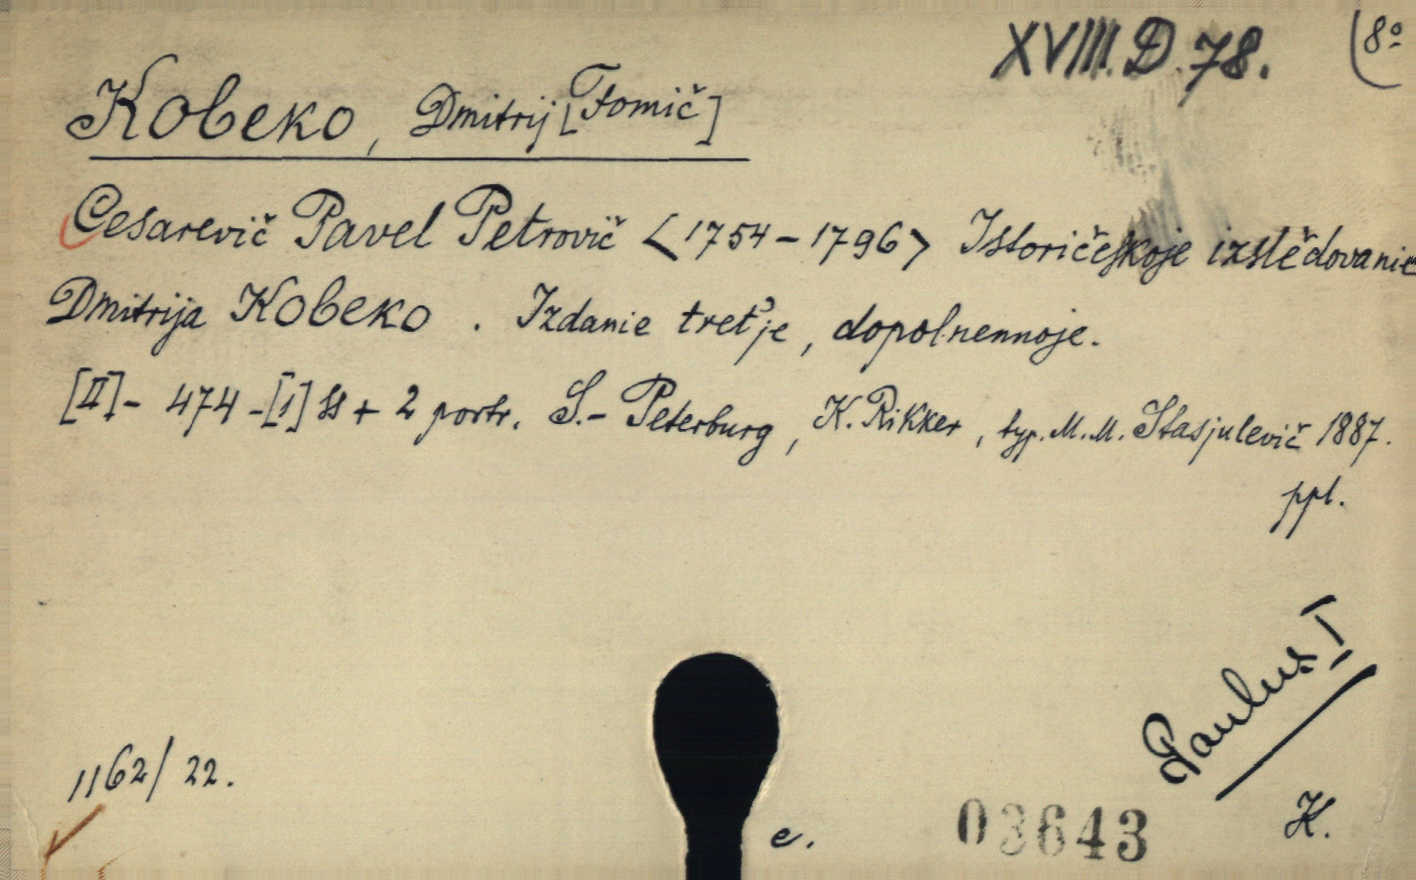 XVIII. D. 78. (8º
Kobeko, Dmitrij [Fomič]
Cesarevič Pavel Petrovič <1754-1796> Istoričeskoje izslědovanie
Dmitrija Kobeko. Izdanie tret'je, dopolnennoje.
[II]- 474 -[1] ss + 2 portr. S.- Peterburg, K. Rikker, typ. M. M. Stasjulevič 1887.
ppl.
Paulus I
1162/22.
e.
03643
K.